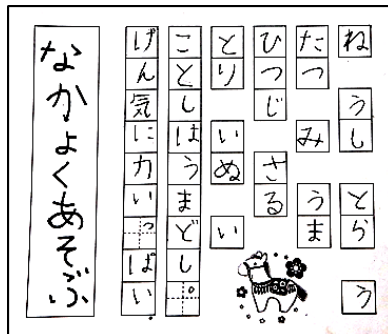 ね　うし　とら　う
たつ　み　うま
ひつじ　さる
とり　いぬ　い
ことしはうまどし。
げん気に力いっぱい
なかよくあそぶ